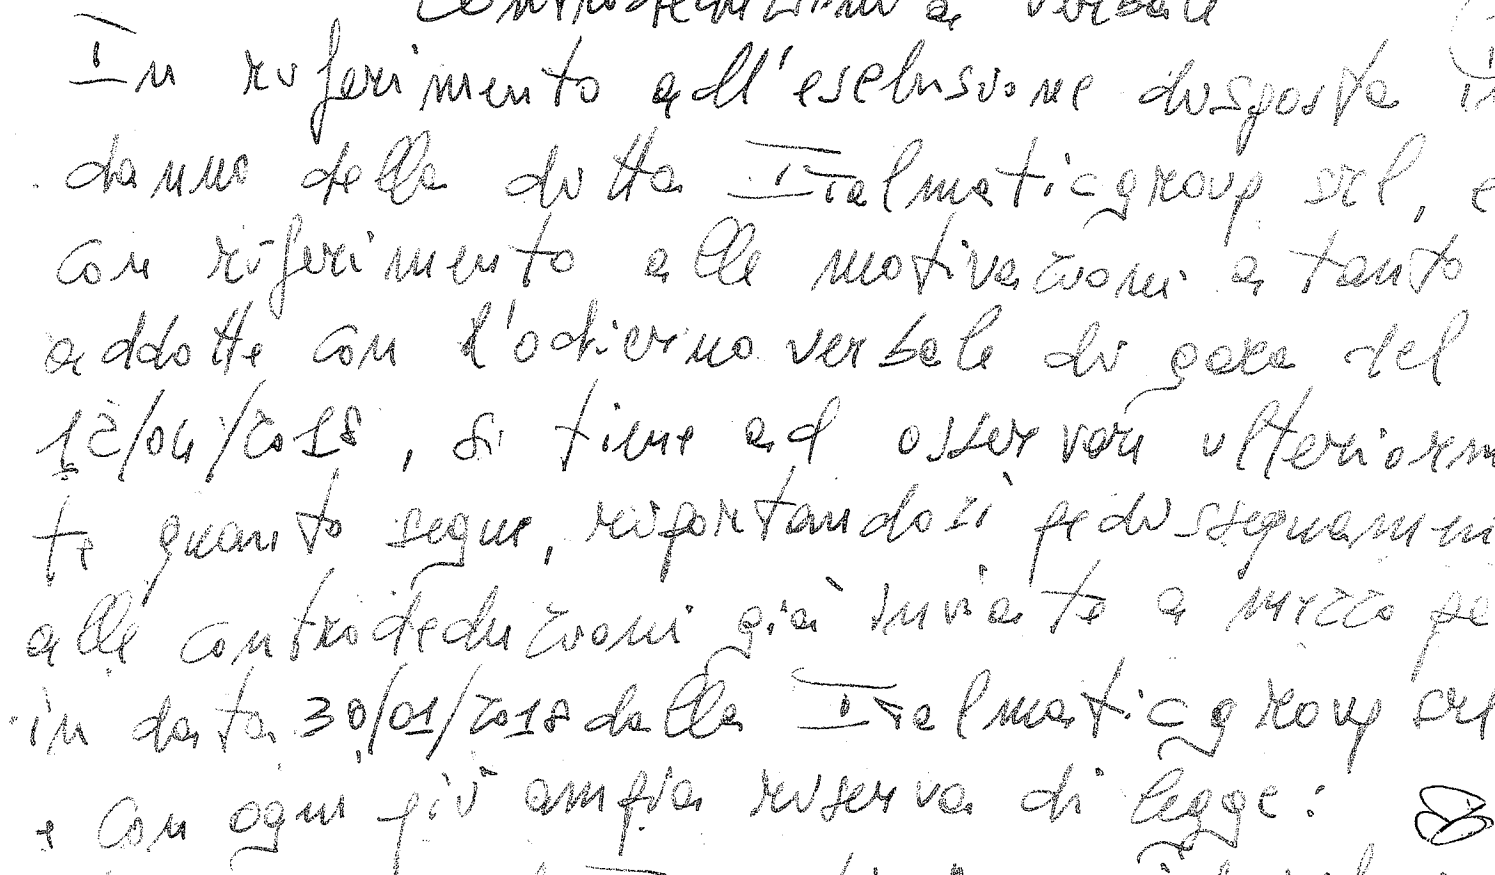 Controdeduzioni a verbale
In riferimento all'esclusione disposta in
danno della ditta Italmaticgroup srl, e
con riferimento alle motivazioni a tanto
addotte con l'odierno verbale di gara del
12/04/2018, si tiene ad osservare ulteriorm
te quanto segue, riportandosi pedissequamen
alle controdeduzioni già inviate a mezzo pe
in data 30/01/2018 dalla Italmaticgroup srl
e con ogni più ampia riserva di legge: